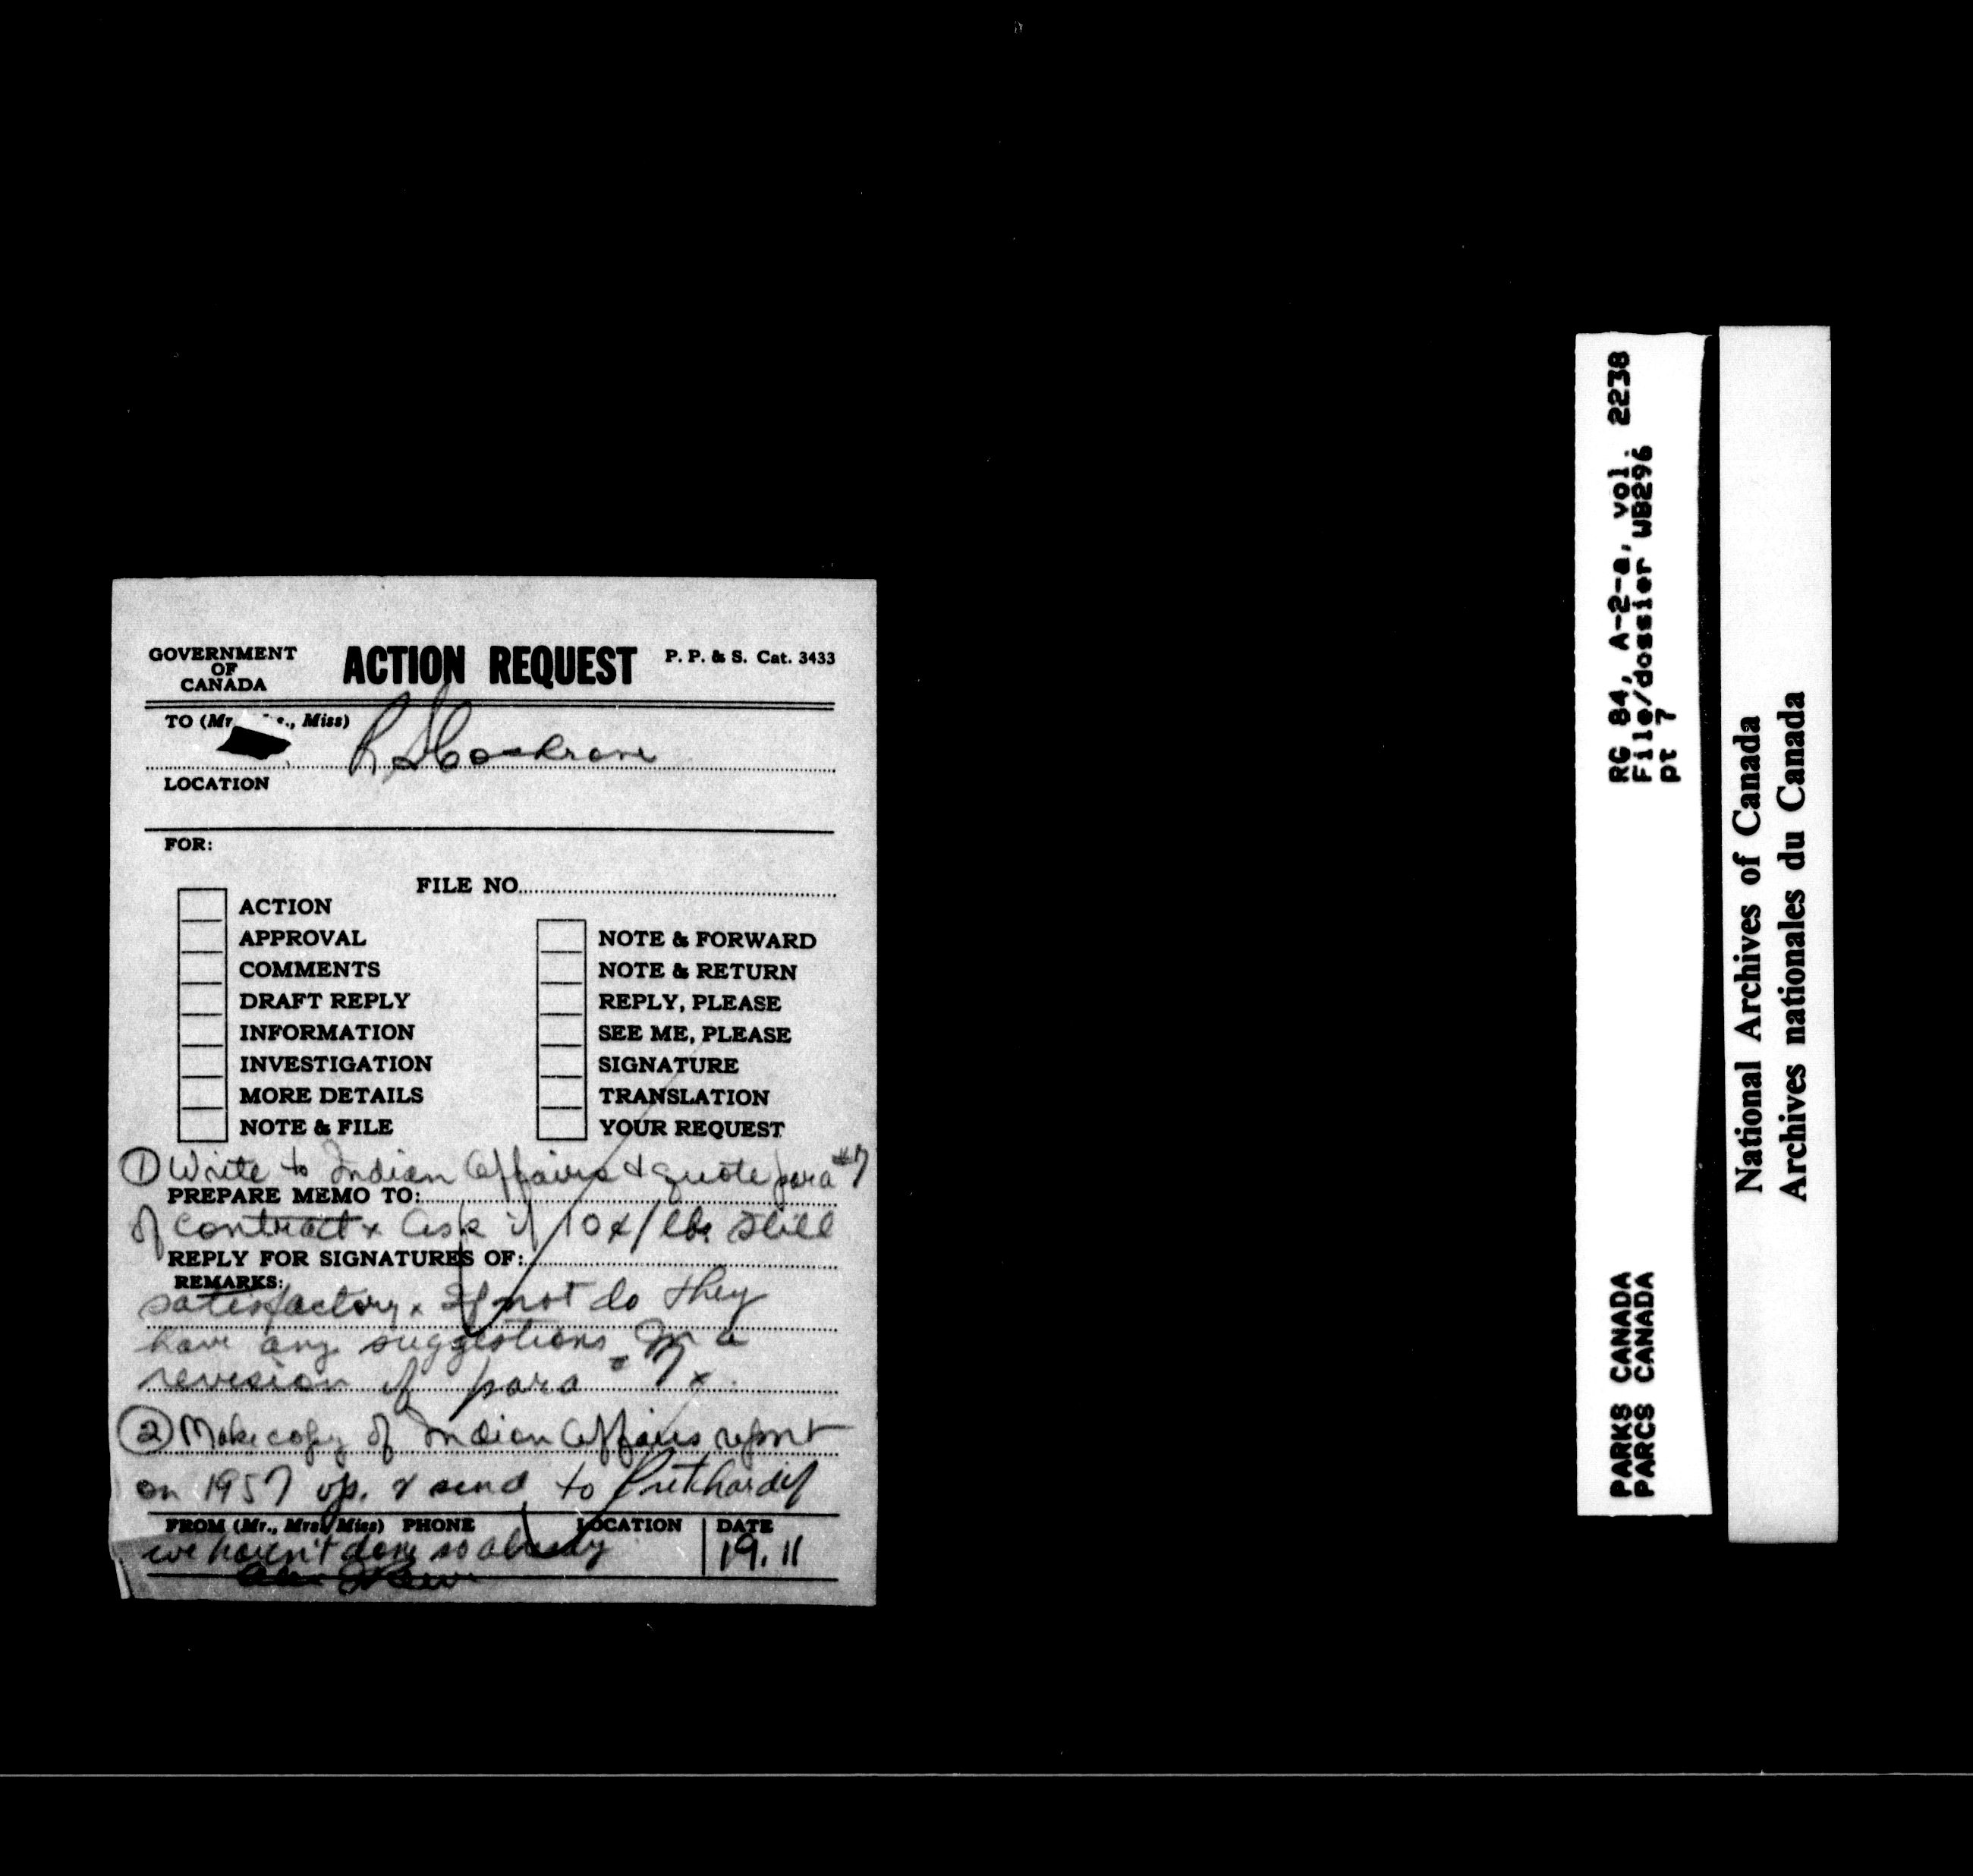 GOVERNMENT
OF
CANADA
ACTION REQUEST
P. P. & S. Cat. 3433
TO (Mr., Miss)
LOCATION
FOR:
FILE NO.
ACTION
APPROVAL
COMMENTS
DRAFT REPLY
INFORMATION
INVESTIGATION
MORE DETAILS
NOTE & FILE
NOTE & FORWARD
NOTE & RETURN
REPLY, PLEASE
SEE ME, PLEASE
SIGNATURE
TRANSLATION
YOUR REQUEST
① Write to Indian Affairs & quote para #7
PREPARE MEMO TO:
of contract x Ask if 10¢/lb. still
REPLY FOR SIGNATURES OF:
REMARKS:
satisfactory x If not do they
have any suggestions in a
revision of para #7 x
② Make copy of Indian Affairs report
on 1957 op. & send to Pritchard if
FROM (Mr., Mrs., Miss) PHONE LOCATION DATE
we haven't done so already
19.11
RG 84, A-2-a, vol. 2238
File/dossier WB296
pt 7
PARKS CANADA
PARCS CANADA
National Archives of Canada
Archives nationales du Canada